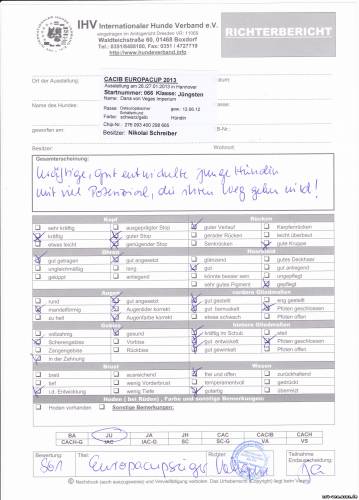 IHV Internationaler Hunde Verband e.V.
eingetragen im Amtsgericht Dresden VR: 11065
Waldteichstraße 60, 01468 Boxdorf
Tel.: 0351/8488180, Fax: 0351 / 4727719
http://www.ihv-hundeverband.de
RICHTERBERICHT
Ort der Ausstellung:
CACIB EUROPACUP 2013
Ausstellung am 26./27.01.2013 in Hannover
Startnummer: 066 Klasse: Jüngsten
Name: Dana von Vegas Imperium
Name des Hundes:
Rasse: Osteuropäischer Schäferhund
gew: 12.06.12
Farbe: schwarz/gelb
Hündin
Chip-Nr:
geworfen am:
Besitzer: Nikolai Schreiber
Besitzer:
Wohnort:
Gesamterscheinung:
kräftige, gut entwickelte junge Hündin
mit viel Potenzial, die ihren Weg gehen wird!
Kopf
Rücken
sehr kräftig
ausgeprägter Stop
guter Verlauf
Karpfenrücken
kräftig
guter Stop
gerader Rücken
leicht überbeut
etwas leicht
genügender Stop
Senkrücken
gute Kruppe
Ohren
Haarkleid
gut getragen
gut angesetzt
glänzend
gutes Deckhaar
ungleichmäßig
lang
gut
gut anliegend
gekippt
anliegend
könnte besser sein
ungepflegt
sehr gutes Pigment
gepflegt
Augen
vordere Gliedmaßen
rund
gut angesetzt
gut gestellt
eng gestellt
mandelförmig
Augenlider korrekt
gut bemuskelt
Pfoten geschlossen
zu hell
Augenfarbe korrekt
etwas schwach
Pfoten offen
Gebiss
hintere Gliedmaßen
vollzahnig
gesund
kräftig im Schub
steil
Scherengebiss
Vorbiss
gut entwickelt
Pfoten geschlossen
Zangengebiss
Rückbiss
gut gewinkelt
Pfoten offen
in der Zahnung
Brust
Wesen
breit
ausreichend
frei und offen
zurückhaltend
tief
wenig Vorderbrust
temperamentvoll
gedrückt
i.d. Entwicklung
wenig Tiefe
gutartig
überreizt
Hoden (bei Rüden) / Farbe und sonstige Bemerkungen:
Hoden vorhanden
Sonstige Bemerkungen:
BA JU JA JH SC CAC CACIB VA
CACH-G IAC IAC-G SC SC-G GCACIB VA VS
Bewertung:
Titel:
Richter:
Teilnahme Endausscheidung:
SG1
Europacupsieger
Ja
Nachdruck (auch auszugsweise) und Vervielfältigung verboten. Das Urheberrecht (Copyright) liegt beim Verlag.